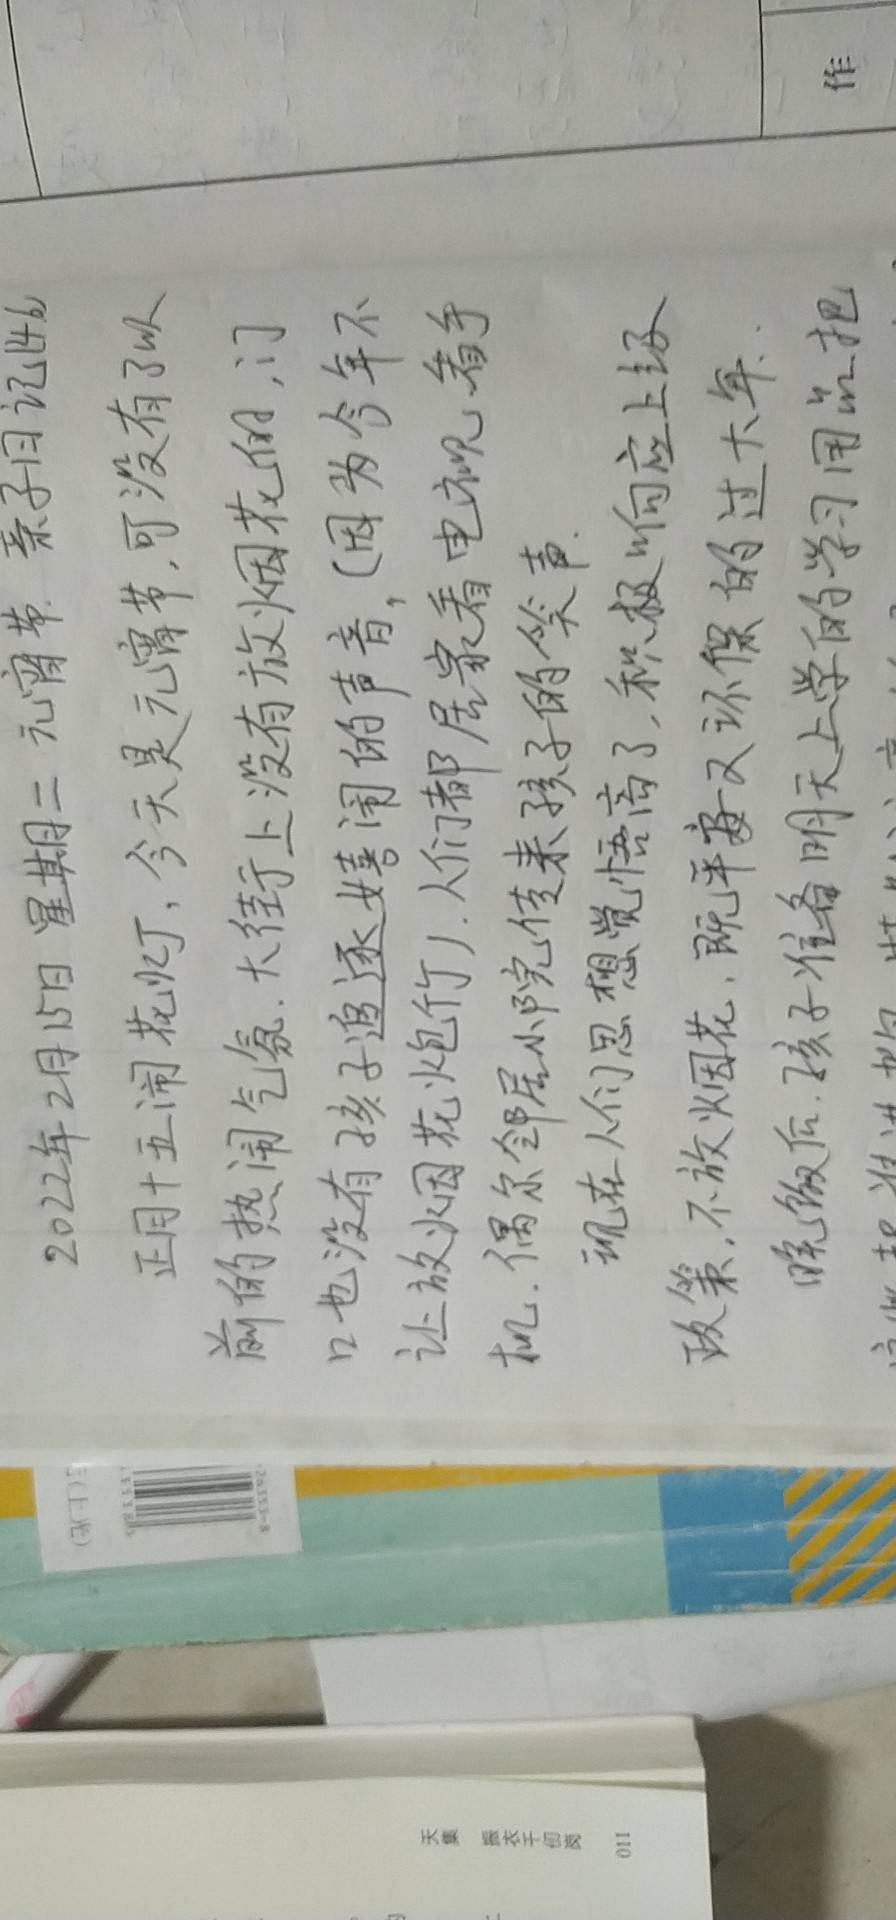 作
2022年2月15日 星期二 元宵节. 亲子日记146
正月十五闹花灯，今天是元宵节，可没有了以
前的热闹气氛. 大街上没有放烟花的，门
口也没有孩子追逐嬉闹的声音，(因为今年不
让放烟花炮竹). 人们都居家看电视，看手
机. 偶尔邻居小院传来孩子的笑声.
现在人们思想觉悟高了，积极响应上级
政策，不放烟花，既平安又环保的过大年.
晚饭后. 孩子准备明天上学的学习用品. 把
天集 振衣千仞岗 011